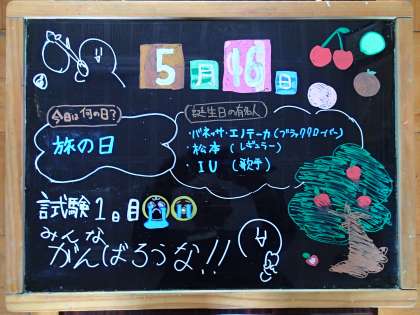 5月16日
今日は何の日?
旅の日
誕生日の有名人
・バネッサ・エノテーカ(ブラッククローバー)
・松本(レギュラー)
・IU(歌手)
試験1日目
みんな
がんばろうな!!